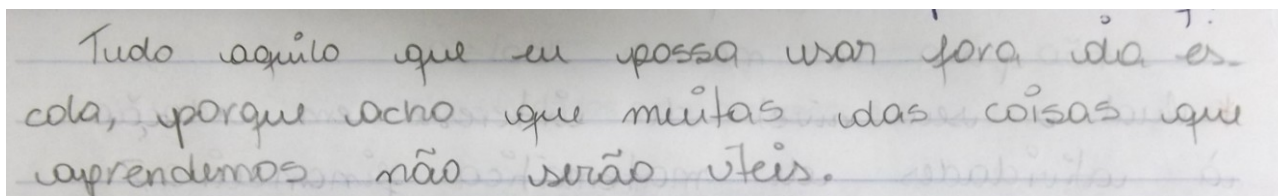 Tudo aquilo que eu possa usar fora da es-
cola, porque acho que muitas das coisas que
aprendemos não serão úteis.